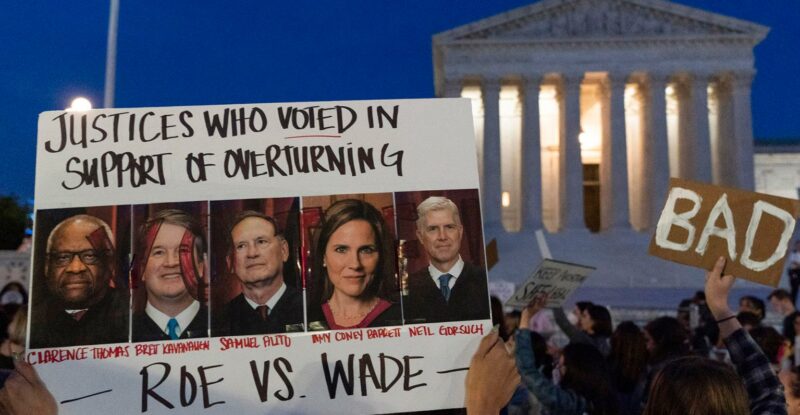 JUSTICES WHO VOTED IN
SUPPORT OF OVERTURNING
CLARENCE THOMAS BRET KAVANAUGH SAMUEL ALITO AMY CONEY BARRETT NEIL GORSUCH
— ROE VS. WADE —
KEEP ABORTION
BAD